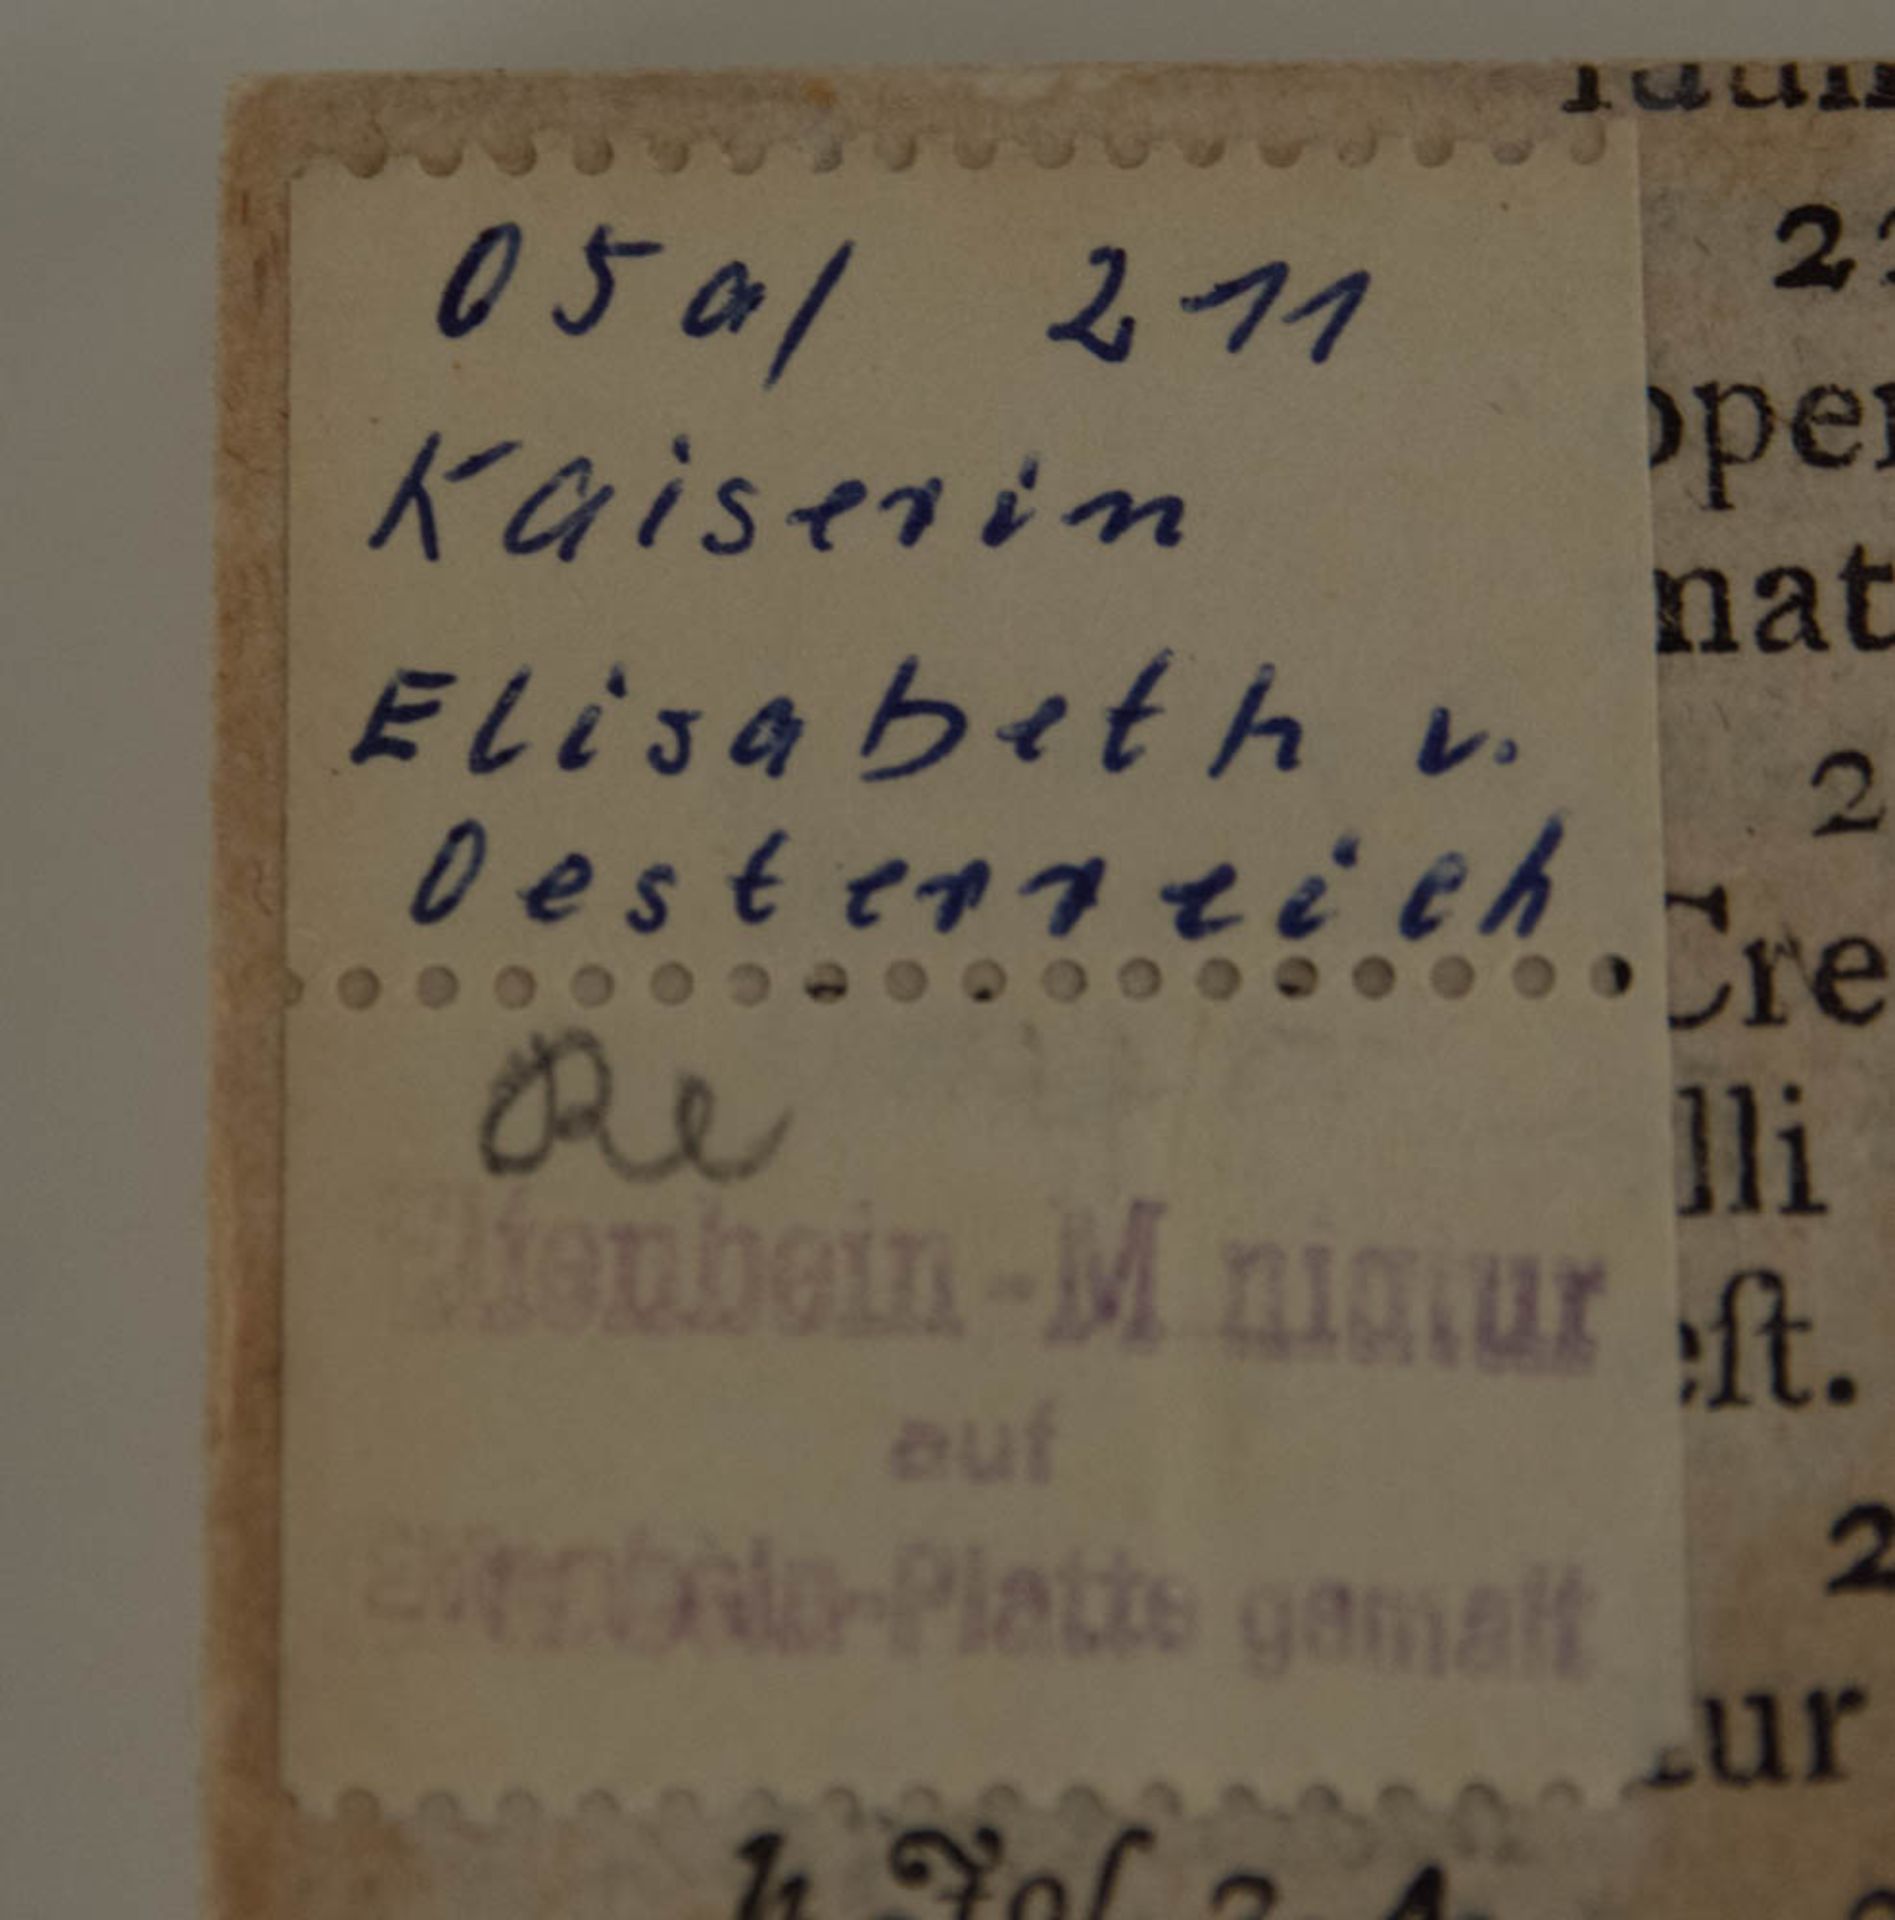 05a/ 211
Kaiserin
Elisabeth v.
Oesterreich
Elfenbein-M niatur
auf
Elfenbein-Platte gemalt
22
oper
nat
2
Cre
lli
eſt.
2
ur
h Joſ 2 4